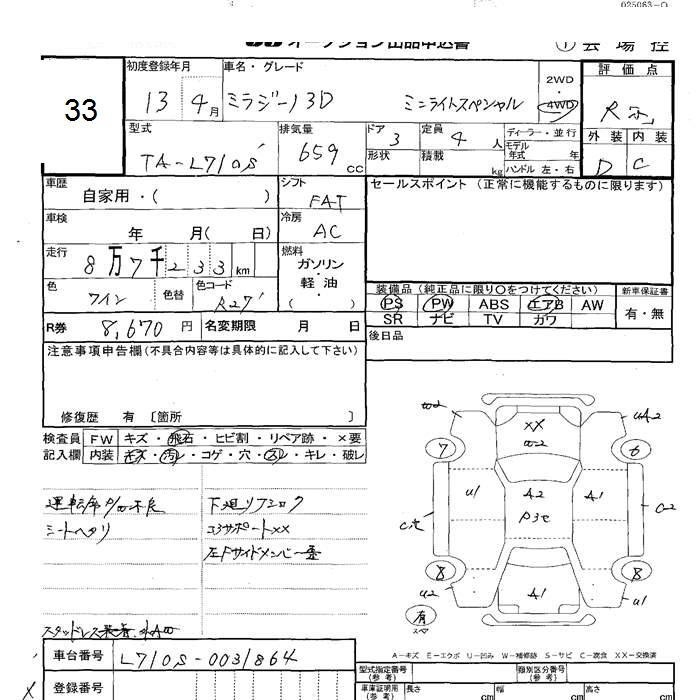 025063-O
オークション出品申込書 ① 会場控
33
初度登録年月 車名・グレード 2WD・4WD 評価点
13 4月 ミラジーノ3D ミニライトスペシャル R
型式 排気量 ドア 3 定員 4人 ディーラー・並行 外装 内装
TA-L710S 659cc 形状 積載 kg モデル年式 年 D C
ハンドル 左・右
車歴 シフト セールスポイント (正常に機能するものに限ります)
自家用・( ) FAT
車検 冷房
年 月( 日) AC
走行 燃料
8万7千233km ガソリン・軽油・( )
色 色替 色コード
ワイン R27
装備品 (純正品に限り○をつけてください) 新車保証書
PS PW ABS エアB AW 有・無
SR ナビ TV カワ
R券 8,670円 名変期限 月 日 後日品
注意事項申告欄(不具合内容等は具体的に記入して下さい)
修復歴 有 〔箇所 〕
検査員 FW キズ・飛石・ヒビ割・リペア跡・×要
記入欄 内装 キズ・汚レ・コゲ・穴・スレ・キレ・破レ
運転席P/W不良 下廻リアシャク
シートヘタリ コアサポートXX
左Fサイドメンバー
スタッドレス
W2 XX W2 UA2
7 6
U1 A2 A1
P3 C2
8 8
U2 A1 U1
有
スペ
A-キズ E-エクボ U-凹み W-補修跡 S-サビ C-腐食 XX-交換済
車台番号 L710S-0031864
型式指定番号 (参考) 類別区分番号 (参考)
登録番号
車庫証明用 (参考) 長さ cm 幅 cm 高さ cm